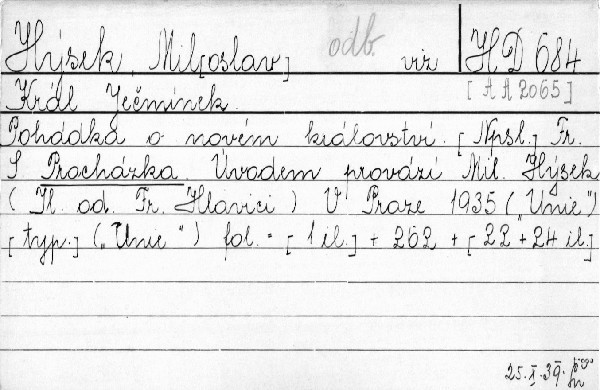 Hýsek, Mil[oslav] odb. viz HD 684
Král Ječmínek. [AA2065]
Pohádka o novém království. [Npsl.] Fr.
S Procházka. Úvodem provází Mil. Hýsek
(Il. od. Fr. Hlavici) V Praze 1935 („Unie")
[typ.] („Unie") fol. - [1 il.] + 262 + [22 + 24 il.]
25.X.39.